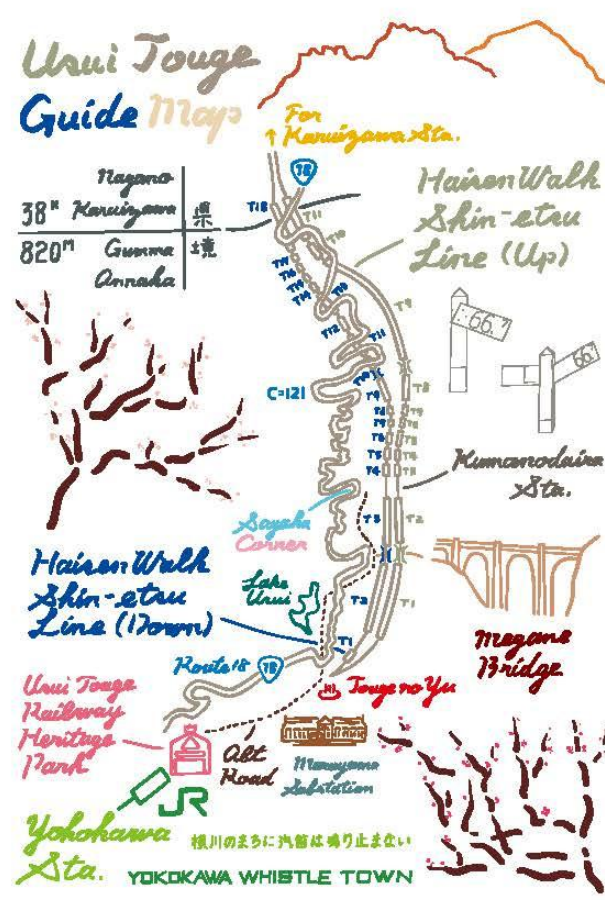 Usui Touge
Guide Map
For
Karuizawa Sta.
18
Nagano
38K Karuizawa 県
820M Gunma 境
Annaka
Haisen Walk
Shin-etsu
Line (Up)
T18
T11
T10
T9
T12
T11
T10
T9
T8
66.7
66.7
C=121
T4
T3
T2
T1
T2
T1
Kumanodaira
Sta.
Sayaka
Corner
Haisen Walk
Shin-etsu
Line (Down)
Lake
Usui
Megane
Bridge
Route 18
18
Touge no Yu
Usui Touge
Railway
Heritage
Park
Abt
Road
Maruyama
Substation
JR
Yokokawa
Sta.
横川のまちに汽笛は鳴り止まない
YOKOKAWA WHISTLE TOWN